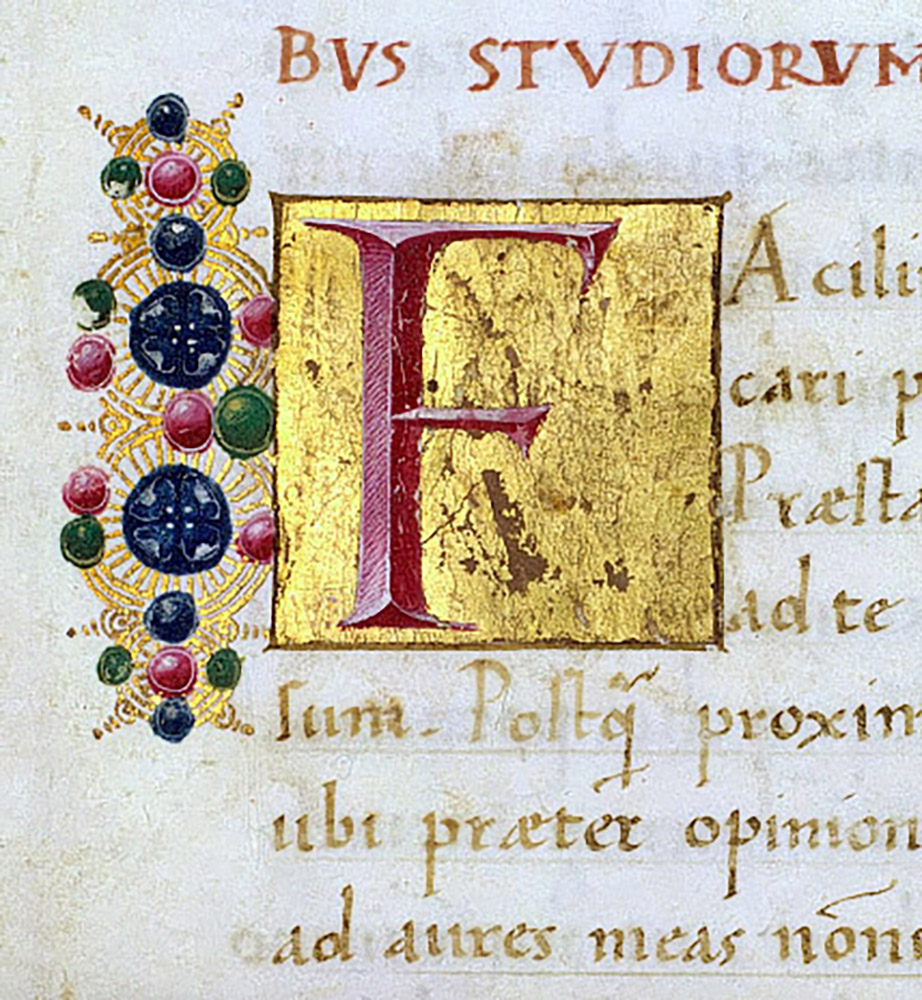 BVS STVDIORVM
FAcili
cari p
Præsta
ad te
sum. Postq̃ proxim
ubi præter opinion
ad aures meas nōn